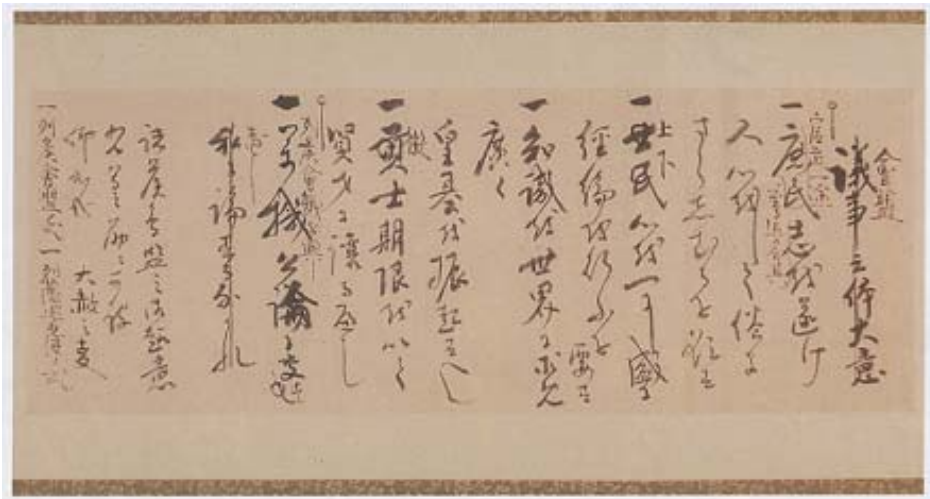 會盟
議事之体大意
一庶民志を遂け
人心をして倦ま
さらしむるを欲す
上下
一士民心を一にし盛に
経綸を行ふを要す
一知識を世界に求め
廣く
皇基を振起すへし
徴
一貢士期限を以て
賢才に譲るへし
一万機公論に決し
私に論するなかれ
諸侯會盟之御趣意
右等之筋に可被
仰出哉 大赦之事
一列侯會盟の式 一列藩巡見使の式